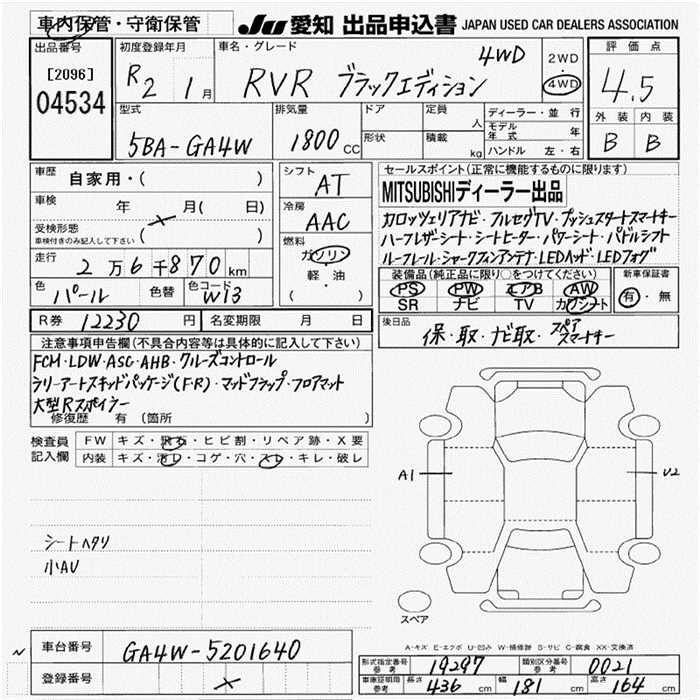 車内保管・守衛保管
JU 愛知 出品申込書 JAPAN USED CAR DEALERS ASSOCIATION
出品番号
[2096]
04534
初度登録年月
R2 1月
車名・グレード
RVR ブラックエディション 4WD
2WD
4WD
評価点
4.5
外装 内装
B B
型式
5BA-GA4W
排気量
1800cc
ドア
形状
定員 人
積載 kg
ディーラー・並行
モデル年式 年
ハンドル 左・右
車歴 自家用・( )
車検 年 月( 日)
受検形態
車検付きのみ記入して下さい ( )
走行 2万6千870km
色 パール 色替 色コード W13
シフト AT
冷房 AAC
燃料 ガソリン・軽・油 ( )
セールスポイント(正常に機能するものに限ります)
MITSUBISHIディーラー出品
カロッツェリアナビ・フルセグTV・プッシュスタートスマートキー
ハーフレザーシート・シートヒーター・パワーシート・パドルシフト
ルーフレール・シャークフィンアンテナ・LEDヘッド・LEDフォグ
装備品(純正品に限り○をつけてください) 新車保証書
PS PW エアB AW 有・無
SR ナビ TV カワシート
R券 12230円 名変期限 月 日
後日品 保・取・ナビ取・スペアスマートキー
注意事項申告欄(不具合内容等は具体的に記入して下さい)
FCM・LDW・ASC・AHB・クルーズコントロール
ラリーアートスキッドパッケージ(F・R)・マッドフラップ・フロアマット
大型Rスポイラー
修復歴 有 (箇所 )
検査員記入欄
FW キズ・飛石・ヒビ割・リペア跡・X要
内装 キズ・汚レ・コゲ・穴・スレ・キレ・破レ
シートヘタリ
小AU
A1
U2
スペア
A-キズ E-エクボ U-凹み W-補修跡 S-サビ C-腐食 XX-交換済
車台番号 GA4W-5201640
登録番号
形式指定番号参考 19297 類別区分番号参考 0021
車庫証明用参考 長さ 436cm 幅 181cm 高さ 164cm